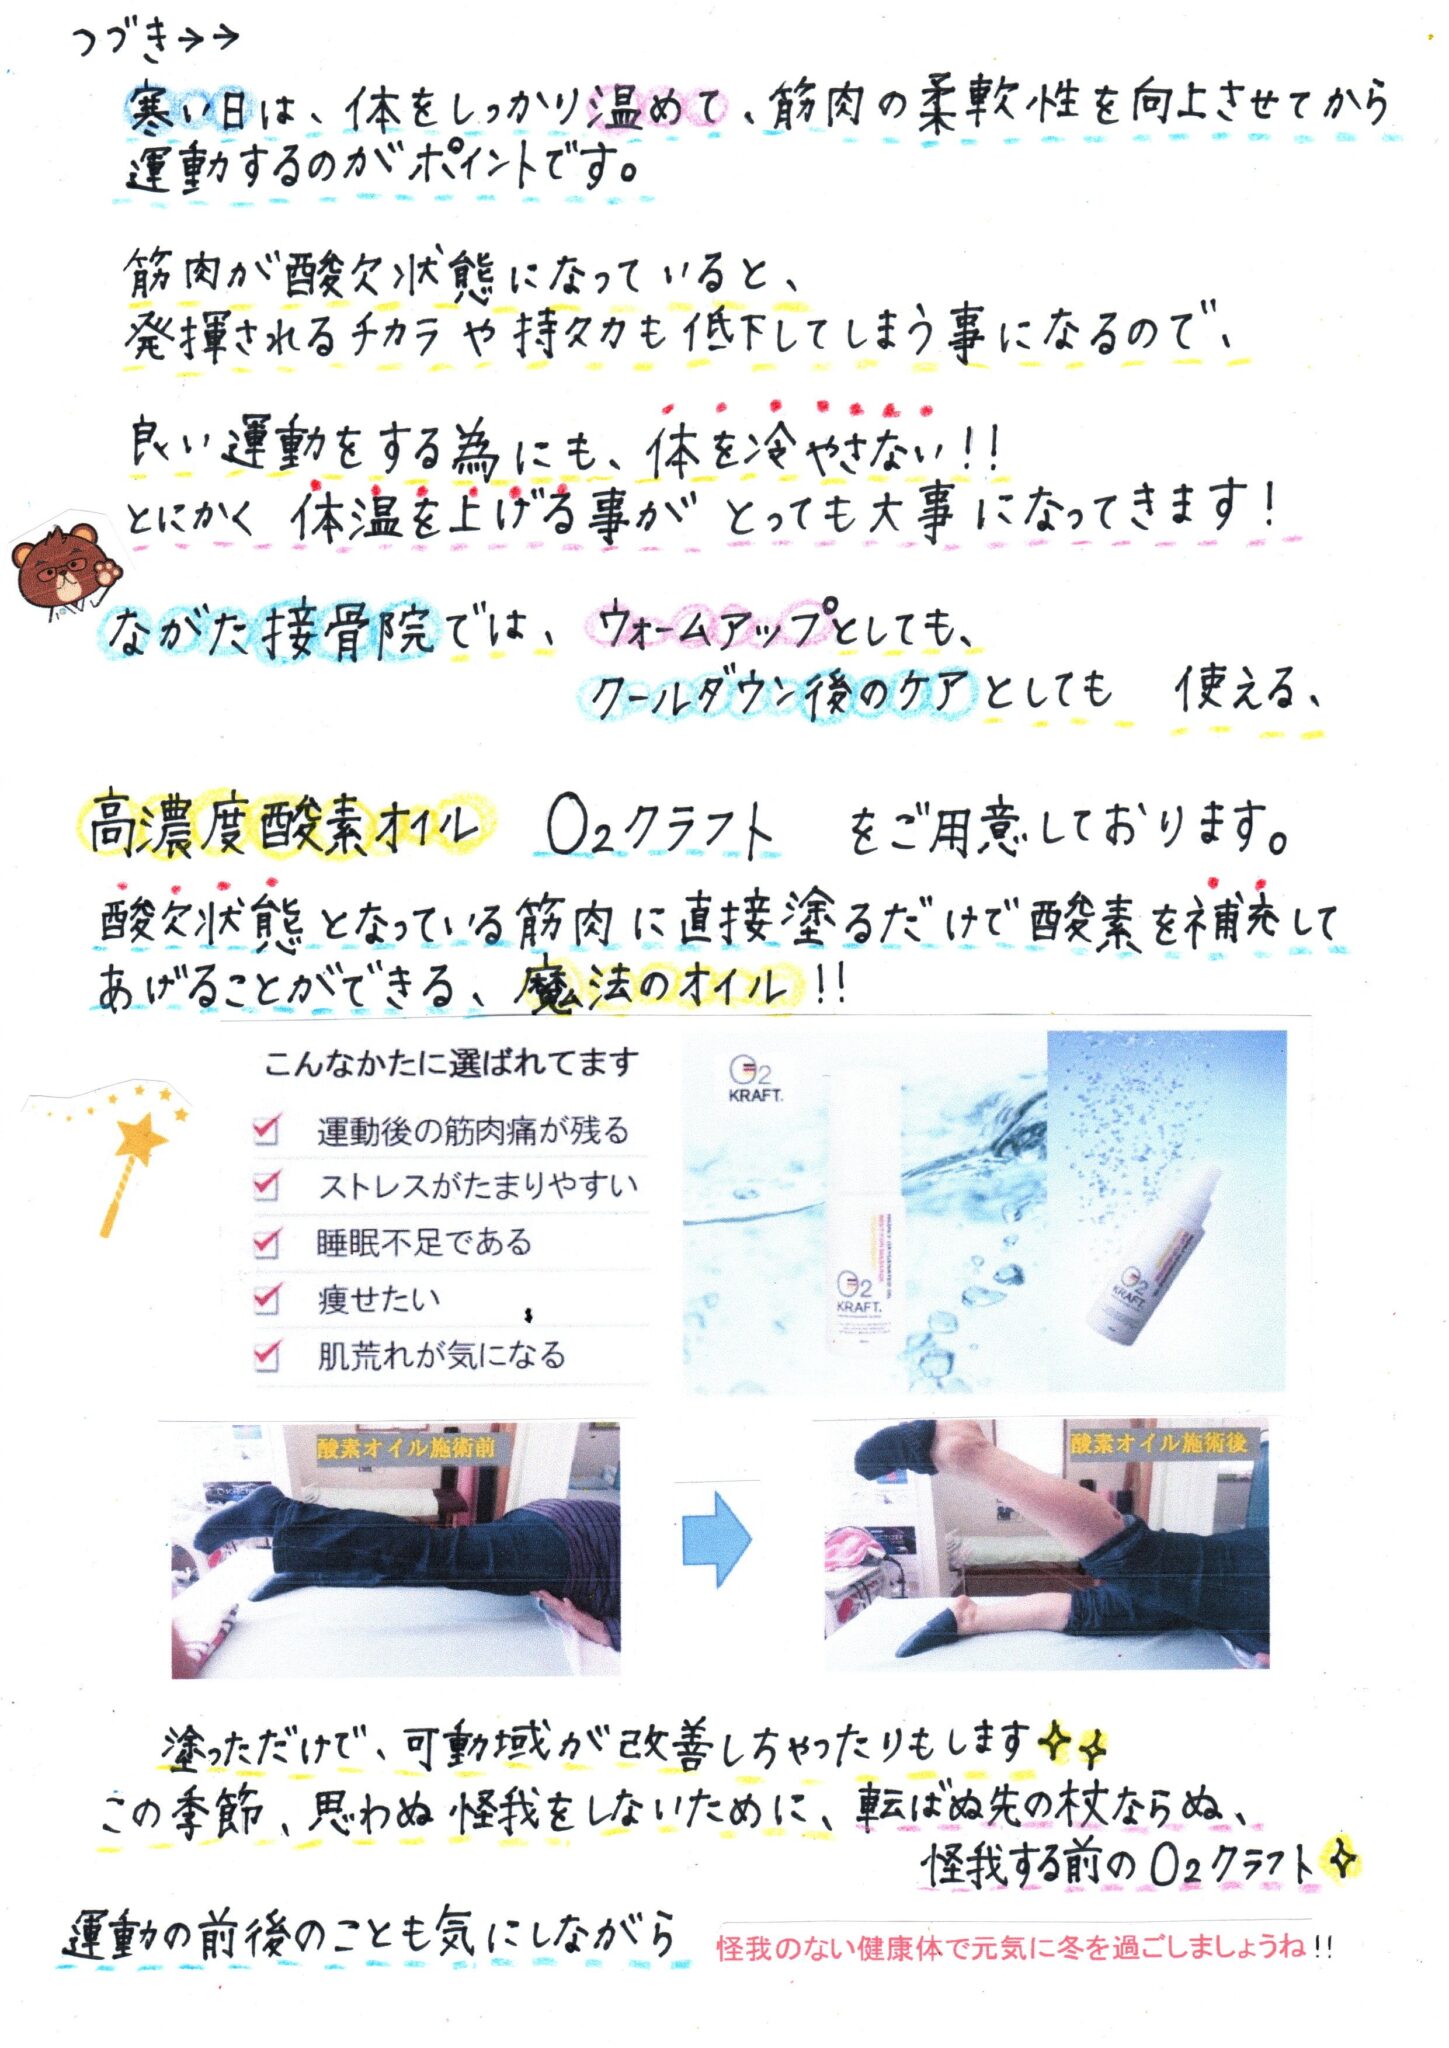 つづき→→
寒い日は、体をしっかり温めて、筋肉の柔軟性を向上させてから
運動するのがポイントです。
筋肉が酸欠状態になっていると、
発揮されるチカラや持久力も低下してしまう事になるので、
良い運動をする為にも、体を冷やさない!!
とにかく 体温を上げる事が とっても大事になってきます!
ながた接骨院では、ウォームアップとしても、
クールダウン後のケアとしても 使える、
高濃度酸素オイル O2クラフト をご用意しております。
酸欠状態となっている筋肉に直接塗るだけで酸素を補充して
あげることができる、魔法のオイル!!
こんなかたに選ばれてます
運動後の筋肉痛が残る
ストレスがたまりやすい
睡眠不足である
痩せたい
肌荒れが気になる
O2
KRAFT.
O2
KRAFT.
O2
KRAFT.
酸素オイル施術前
酸素オイル施術後
塗っただけで、可動域が改善しちゃったりもします
この季節、思わぬ怪我をしないために、転ばぬ先の杖ならぬ、
怪我する前のO2クラフト
運動の前後のことも気にしながら 怪我のない健康体で元気に冬を過ごしましょうね!!